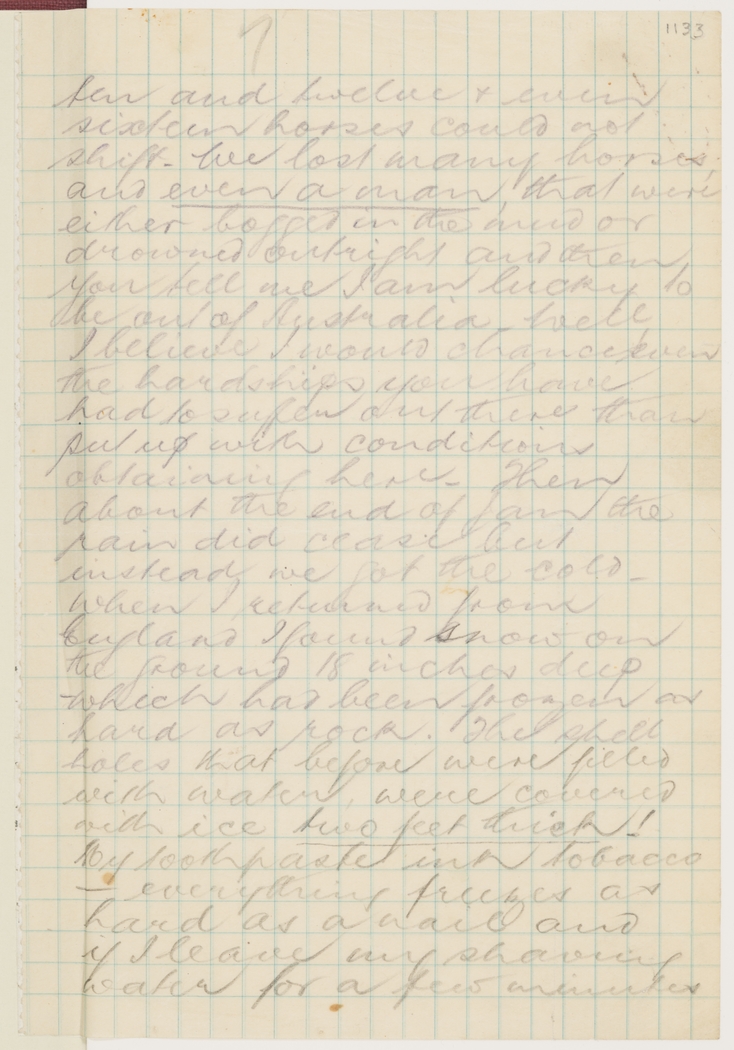 7
1133
ten and twelve & even
sixteen horses could not
shift - We lost many horses,
and even a man, that were
either bogged in the mud or
drowned outright and then
you tell me I am lucky to
be out of Australia. Well,
I believe I would chance even
the hardships you have
had to sufer out there than
put up with conditions
obtaining here - Then
about the end of Jan the
rain did cease but
instead, we got the cold -
When I returned from
England I found snow on
the ground 18 inches deep
which had been frozen as
hard as rock. The shell
holes that before were filled
with water, were covered
with ice two feet thick!
My toothpaste ink tobacco
— everything freezes as
hard as a nail and
if I leave my shaving
water for a few minutes